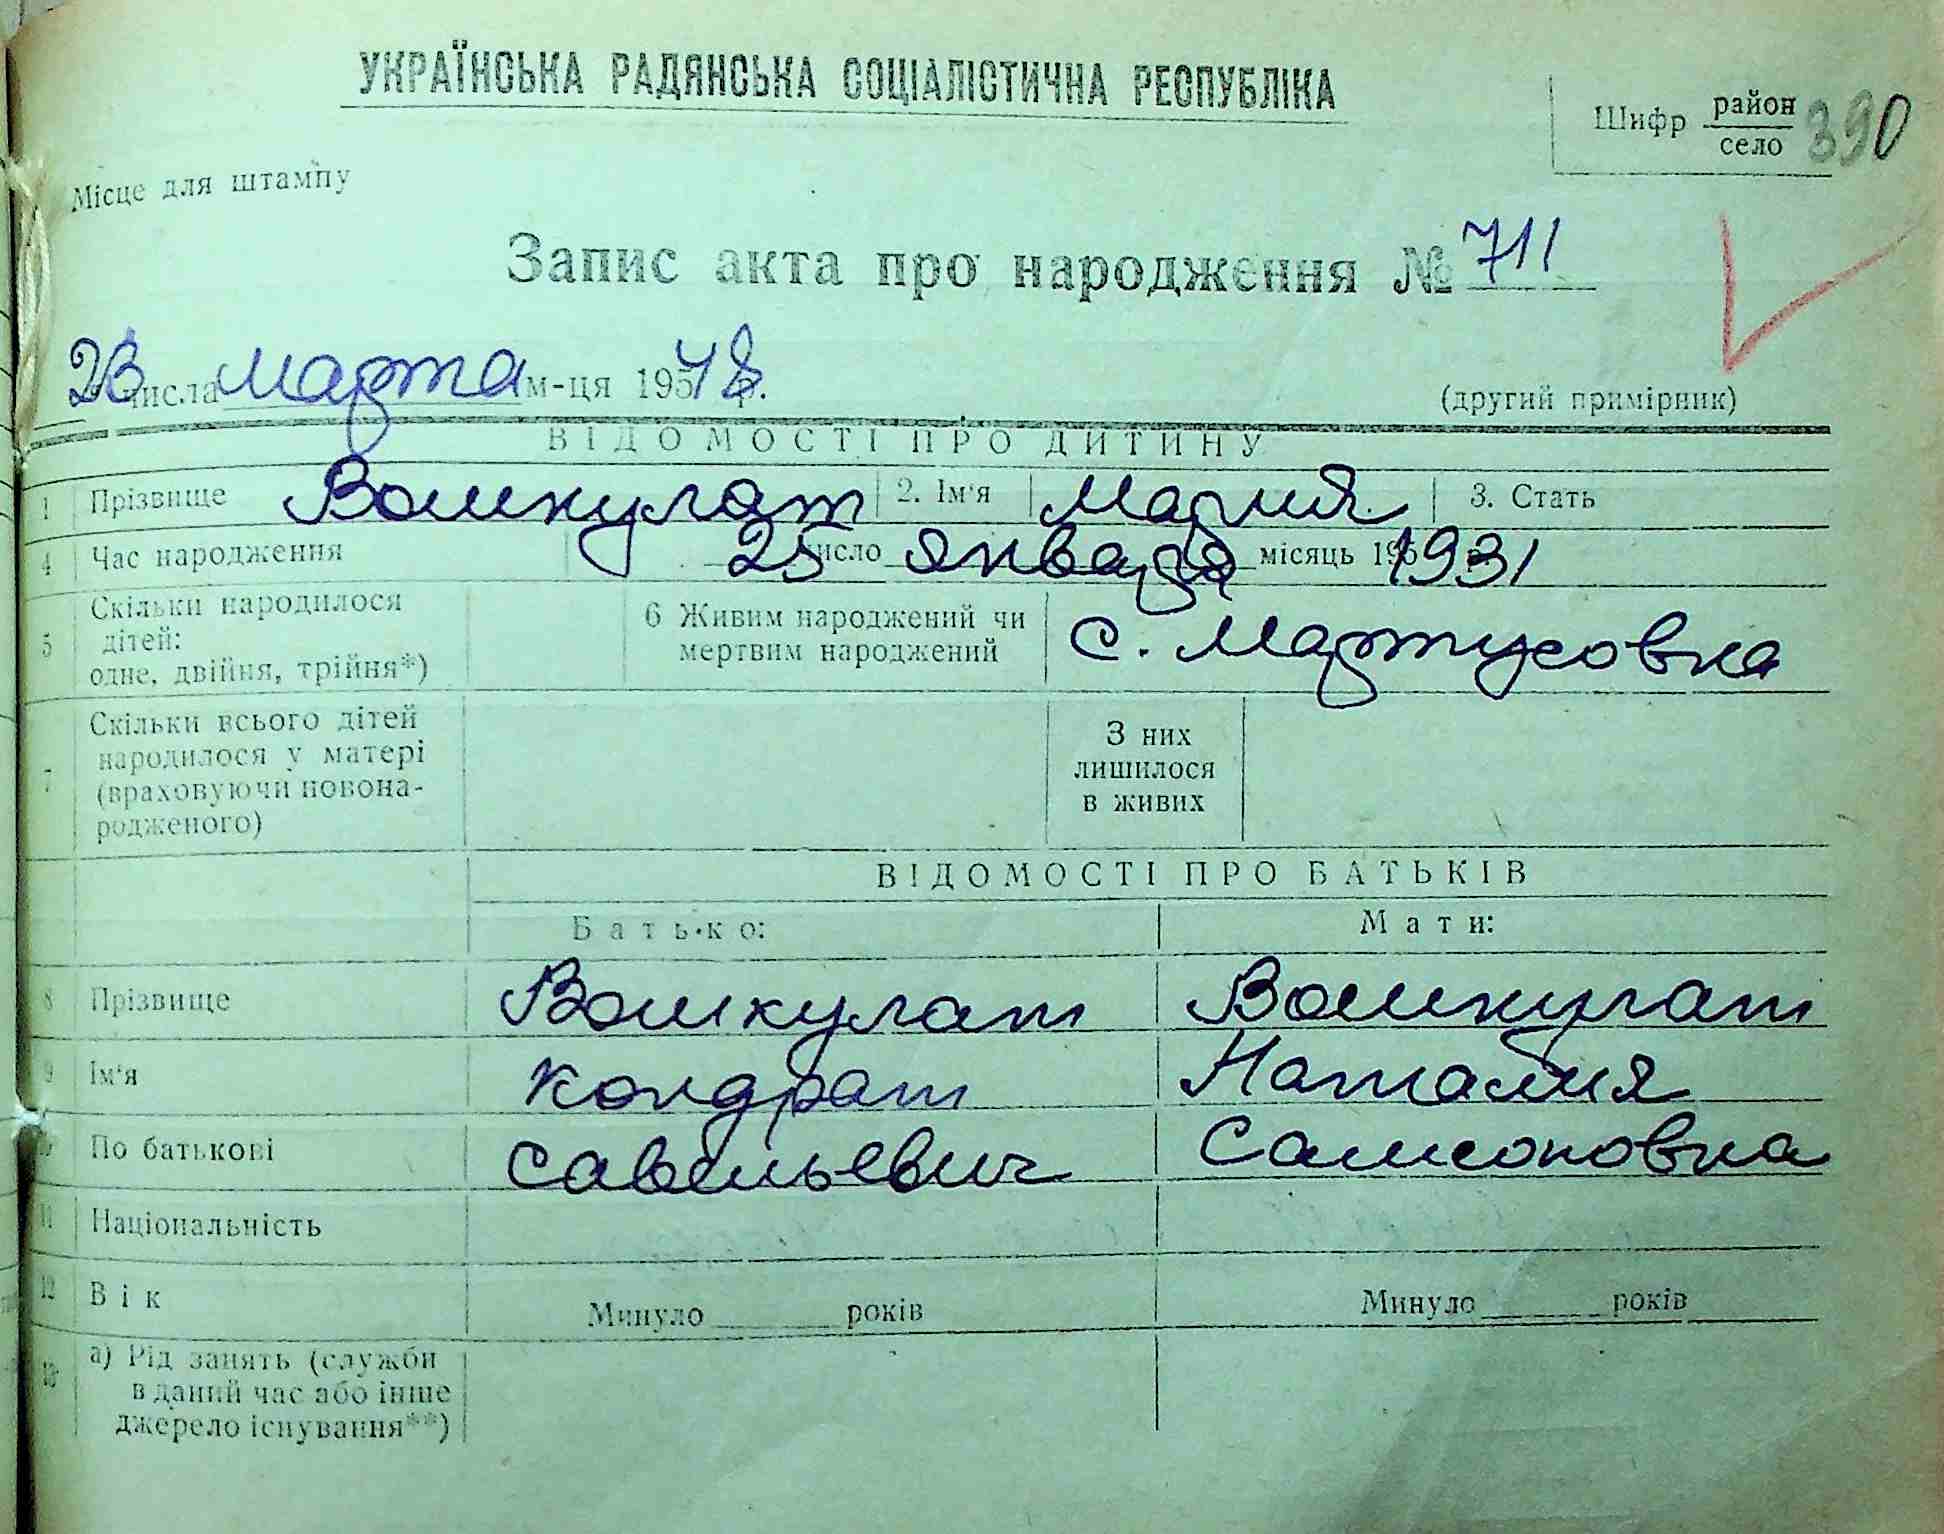 УКРАЇНСЬКА РАДЯНСЬКА СОЦІАЛІСТИЧНА РЕСПУБЛІКА
Шифр район
село
390
Місце для штампу
Запис акта про народження № 711
числа марта м-ця 195
(другий примірник)
ВІДОМОСТІ ПРО ДИТИНУ
1 Прізвище Вошкулат 2. Ім'я Мария 3. Стать
4 Час народження 25 число января місяць 195 1931
5 Скільки народилося дітей: одне, двійня, трійня*) 6 Живим народжений чи мертвим народжений с. Мартусовка
7 Скільки всього дітей народилося у матері (враховуючи новонародженого) З них лишилося в живих
ВІДОМОСТІ ПРО БАТЬКІВ
Батько: Мати:
8 Прізвище Вошкулат Вошкулат
9 Ім'я Кондрат Наталия
10 По батькові Савельевич Самсоновна
11 Національність
12 Вік Минуло років Минуло років
13 а) Рід занять (служби в даний час або інше джерело існування**)